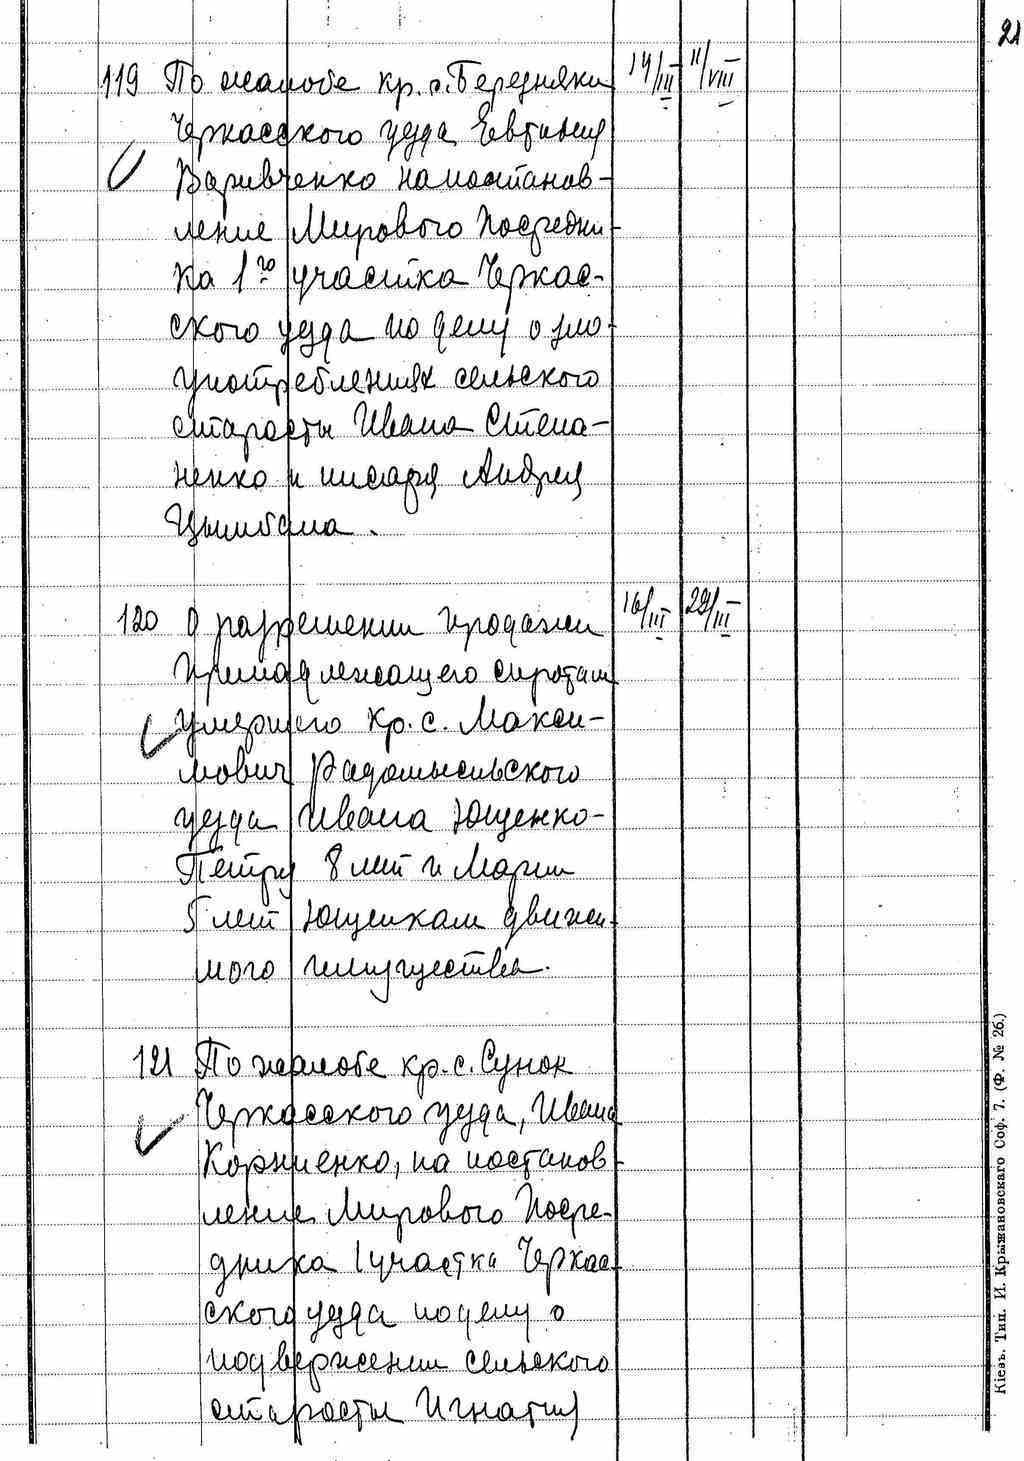 21
119 По жалобе кр. с. Бередняки 14/III 11/VIII
Черкасского уезда Евтимия
Варивченко на постанов-
ление Мирового Посредни-
ка 1го участка Черкас-
ского уезда по делу о зло-
употреблениях сельского
старосты Ивана Степа-
ненко и писаря Андрея
Цымбала.
120 О разрешении продажи 16/III 29/III
принадлежащего сиротам
умершего кр. с. Макси-
мович Радомысльского
уезда Ивана Ющенко-
Петру 8 лет и Марии
5 лет Ющенкам движи-
мого имущества.
121 По жалобе кр. с. Сунок
Черкасского уезда, Ивана
Корниенко, на постанов-
ление Мирового Посре-
дника 1 участка Черкас-
ского уезда по делу о
подвержении сельского
старосты Игнатия
Кіевъ. Тип. И. Крыжановскаго Соф. 7. (Ф. № 26.)